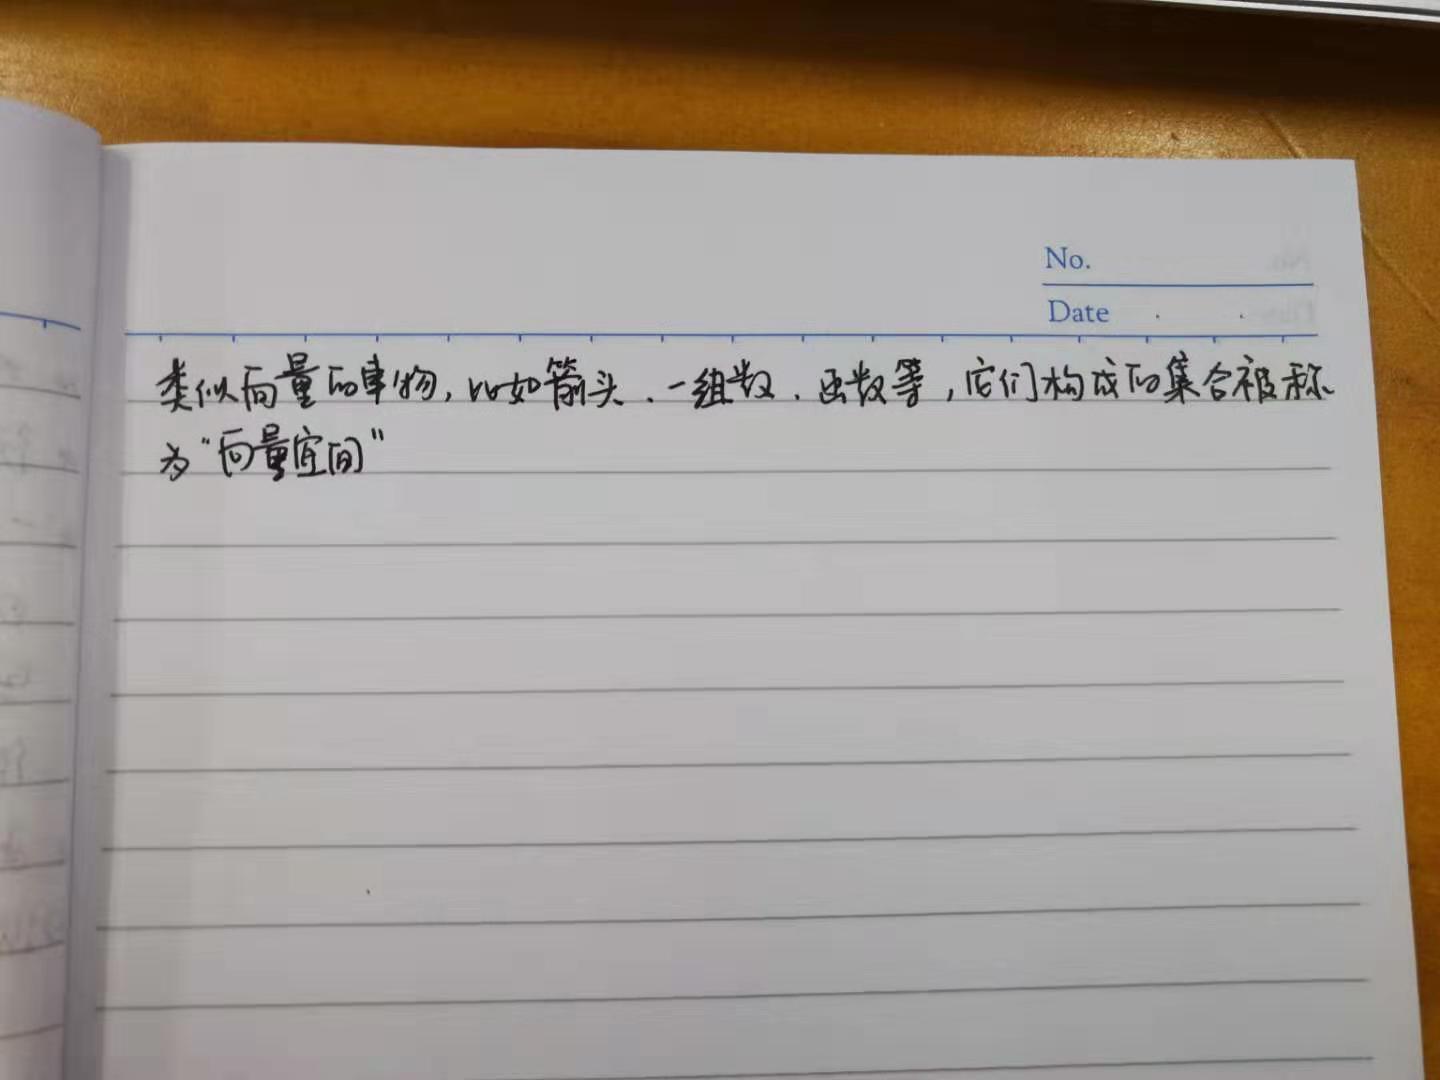 No.
Date
类似向量的事物，比如箭头、一组数、函数等，它们构成的集合被称
为“向量空间”